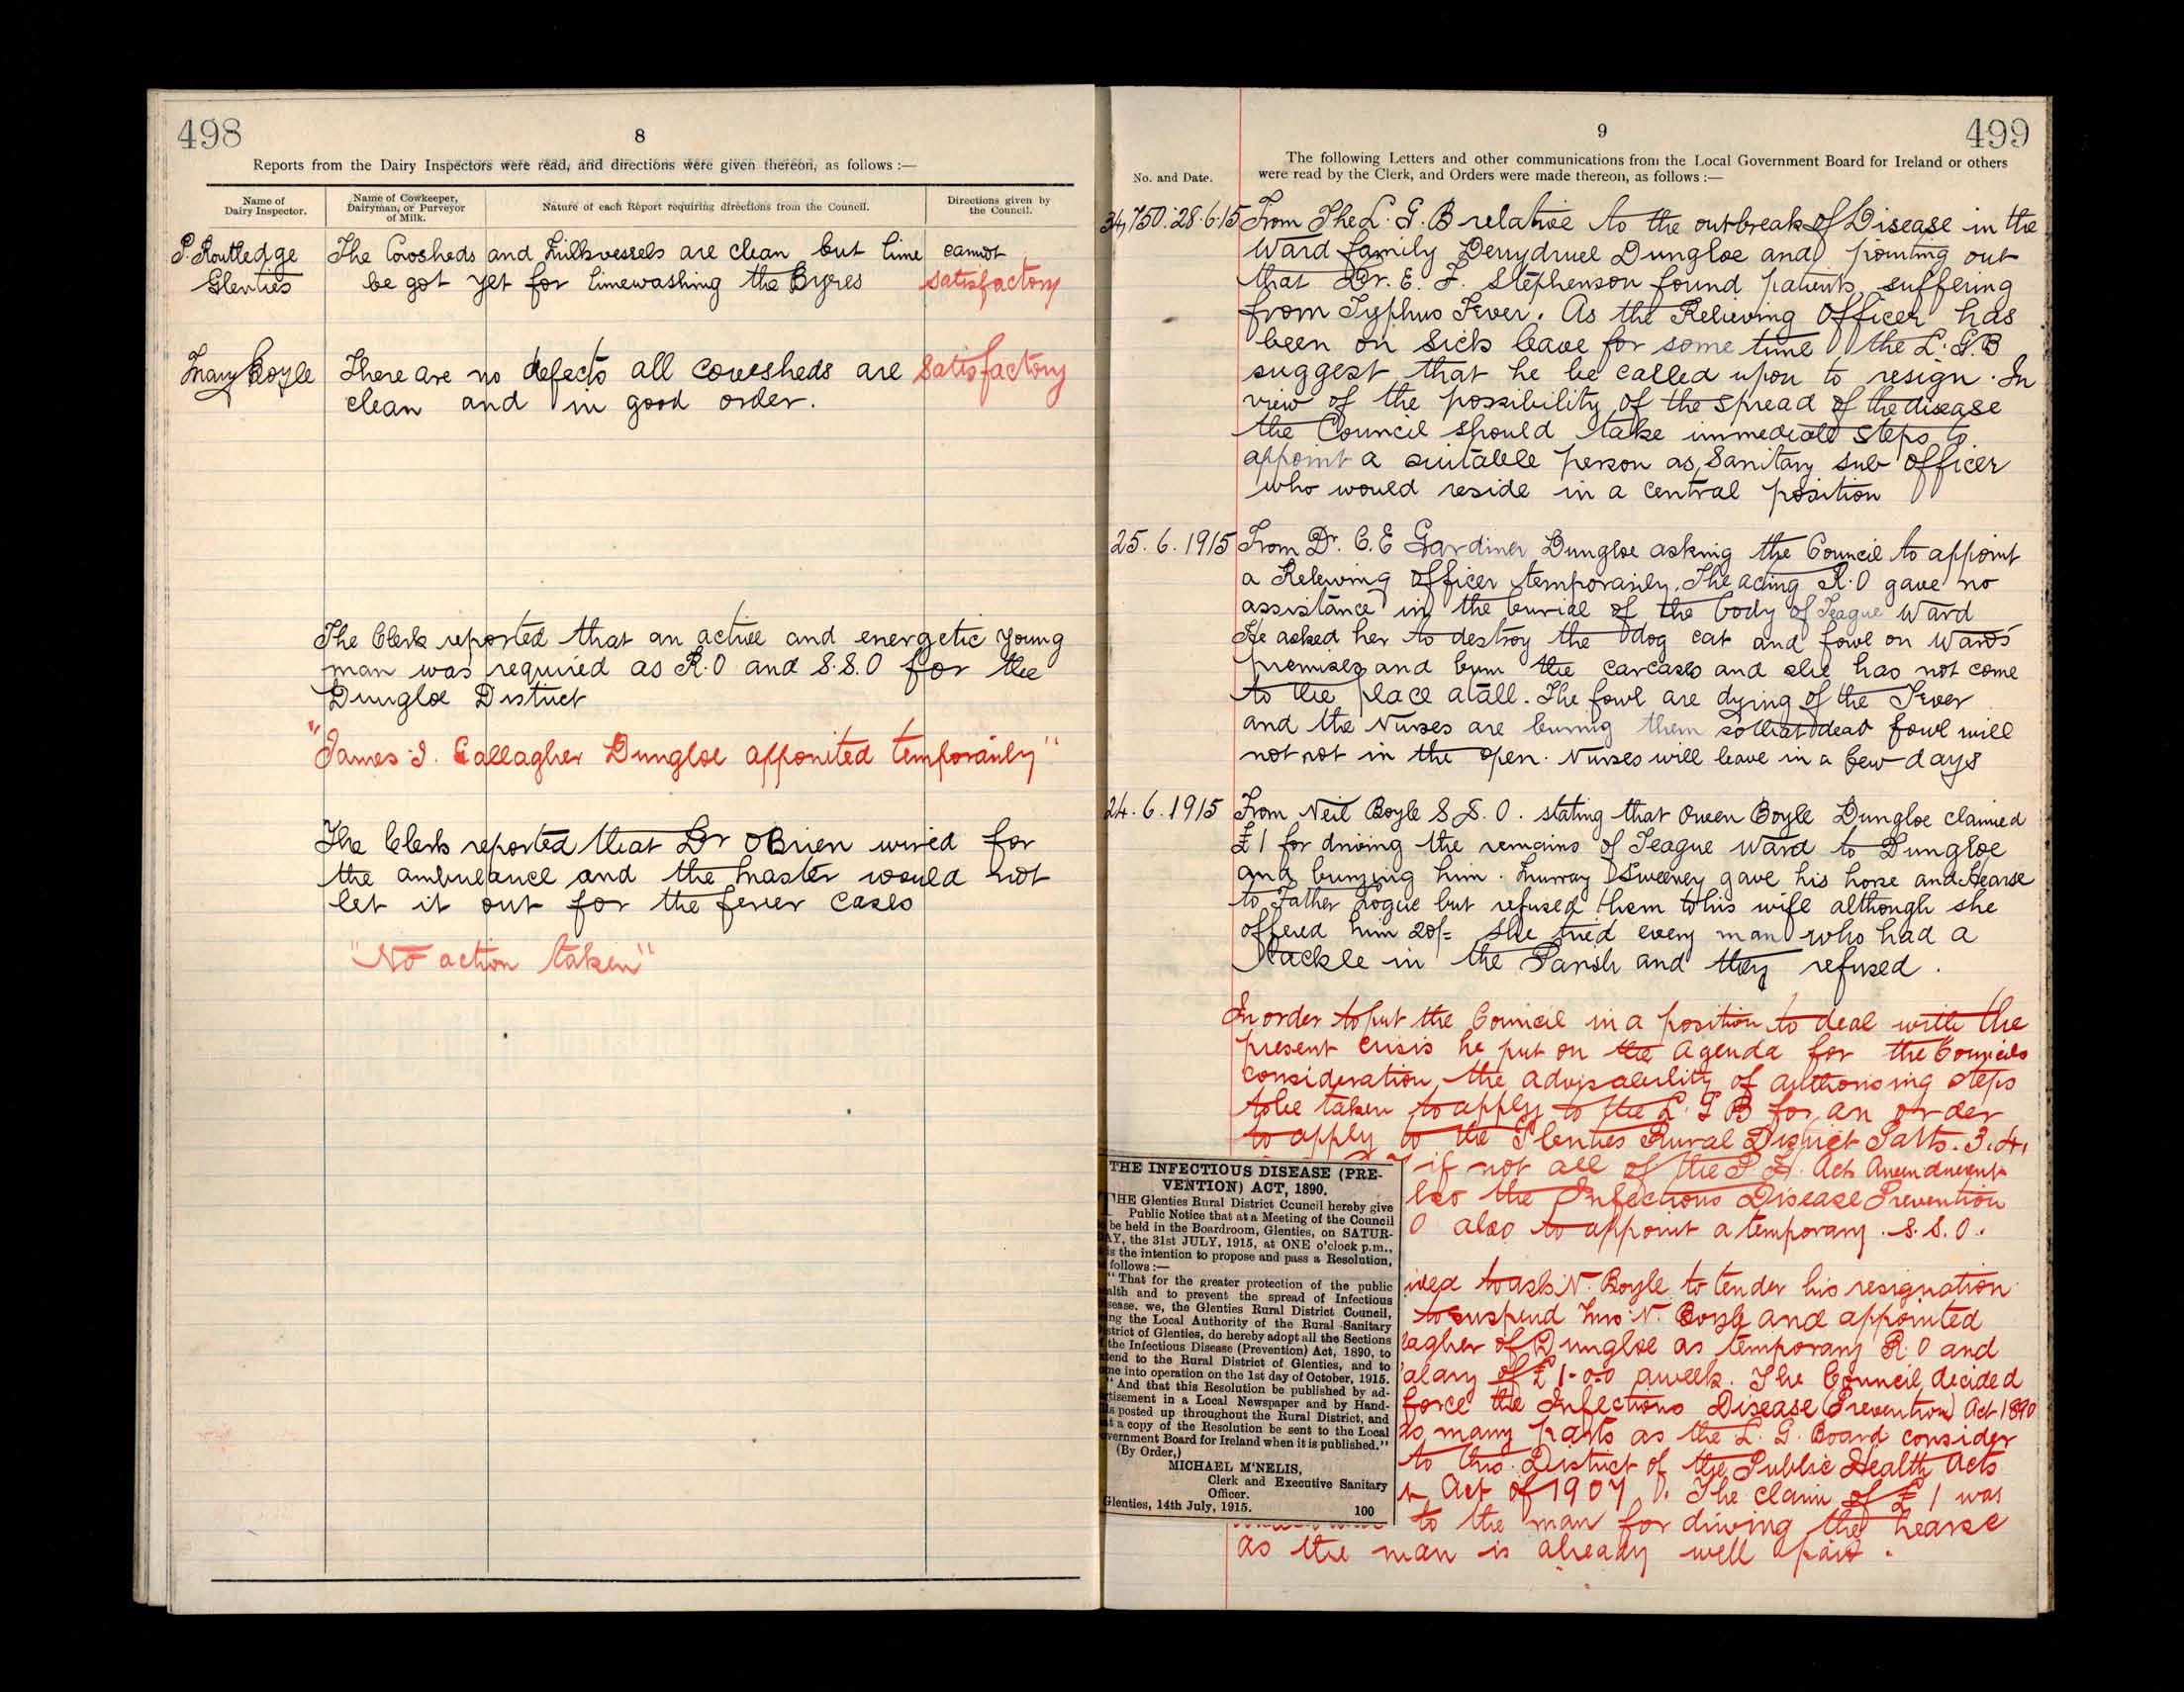 498
8
Reports from the Dairy Inspectors were read, and directions were given thereon, as follows :—
Name of Dairy Inspector.
Name of Cowkeeper, Dairyman, or Purveyor of Milk.
Nature of each Report requiring directions from the Council.
Directions given by the Council.
P. Routledge The Cowsheds and Milkvessels are clean but lime cannot
Glenties be got yet for limewashing the Byres satisfactory
Mary Boyle There are no defects all cowsheds are satisfactory
clean and in good order.
The Clerk reported that an active and energetic young
man was required as R.O and S.S.O for the
Dungloe District
"James J. Gallagher Dungloe appointed temporarily"
The Clerk reported that Dr OBrien wired for
the ambulance and the Master would not
let it out for the fever cases
"No action taken"
499
9
The following Letters and other communications from the Local Government Board for Ireland or others
No. and Date.
were read by the Clerk, and Orders were made thereon, as follows :—
34,750.28.6.15 From The L.G.B relative to the outbreak of Disease in the
Ward family Derrydruel Dungloe and pointing out
that Dr. E. F. Stephenson found patients suffering
from Typhus Fever. As the Relieving Officer has
been on sick leave for some time the L.G.B
suggest that he be called upon to resign. In
view of the possibility of the spread of the disease
the Council should take immediate steps to
appoint a suitable person as Sanitary Sub Officer
who would reside in a central position
25.6.1915 From Dr. C.E Gardiner Dungloe asking the Council to appoint
a Relieving Officer temporarily. The acting R.O gave no
assistance in the burial of the body of Teague Ward
He asked her to destroy the dog cat and fowl on Wards
premises and burn the carcases and she has not come
to the place atall. The fowl are dying of the Fever
and the Nurses are burning them so that dead fowl will
not rot in the open. Nurses will leave in a few days
24.6.1915 From Neil Boyle S.S.O. stating that Owen Boyle Dungloe claimed
£1 for driving the remains of Teague Ward to Dungloe
and burying him. Murray Sweeney gave his horse and Hearse
to Father Logue but refused them to his wife although she
offered him 20/= she tried every man who had a
tackle in the Parish and they refused.
In order to put the Council in a position to deal with the
present crisis he put on the agenda for the Councils
consideration the advisability of authorising steps
to be taken to apply to the L.G.B for an order
to apply to the Glenties Rural District Parts. 3.4.
if not all of the P.H. Act Amendment
lso the Infectious Disease Prevention
O also to appoint a temporary S.S.O.
ided to ask N. Boyle to tender his resignation
to suspend Mrs N. Boyle and appointed
lagher of Dungloe as temporary R.O and
alary of £1-0-0 aweek. The Council decided
force the Infectious Disease (Prevention) Act 1890
as many parts as the L.G. Board consider
to this District of the Public Health Acts
t Act of 1907. The claim of £1 was
to the man for driving the hearse
as the man is already well paid.
THE INFECTIOUS DISEASE (PRE-
VENTION) ACT, 1890.
THE Glenties Rural District Council hereby give
Public Notice that at a Meeting of the Council
be held in the Boardroom, Glenties, on SATUR-
AY, the 31st JULY, 1915, at ONE o'clock p.m.,
is the intention to propose and pass a Resolution,
follows :—
"That for the greater protection of the public
alth and to prevent the spread of Infectious
sease, we, the Glenties Rural District Council,
ing the Local Authority of the Rural Sanitary
strict of Glenties, do hereby adopt all the Sections
the Infectious Disease (Prevention) Act, 1890, to
tend to the Rural District of Glenties, and to
me into operation on the 1st day of October, 1915.
"And that this Resolution be published by ad-
rtisement in a Local Newspaper and by Hand-
ls posted up throughout the Rural District, and
at a copy of the Resolution be sent to the Local
vernment Board for Ireland when it is published."
(By Order,)
MICHAEL M'NELIS,
Clerk and Executive Sanitary
Officer.
Glenties, 14th July, 1915. 100